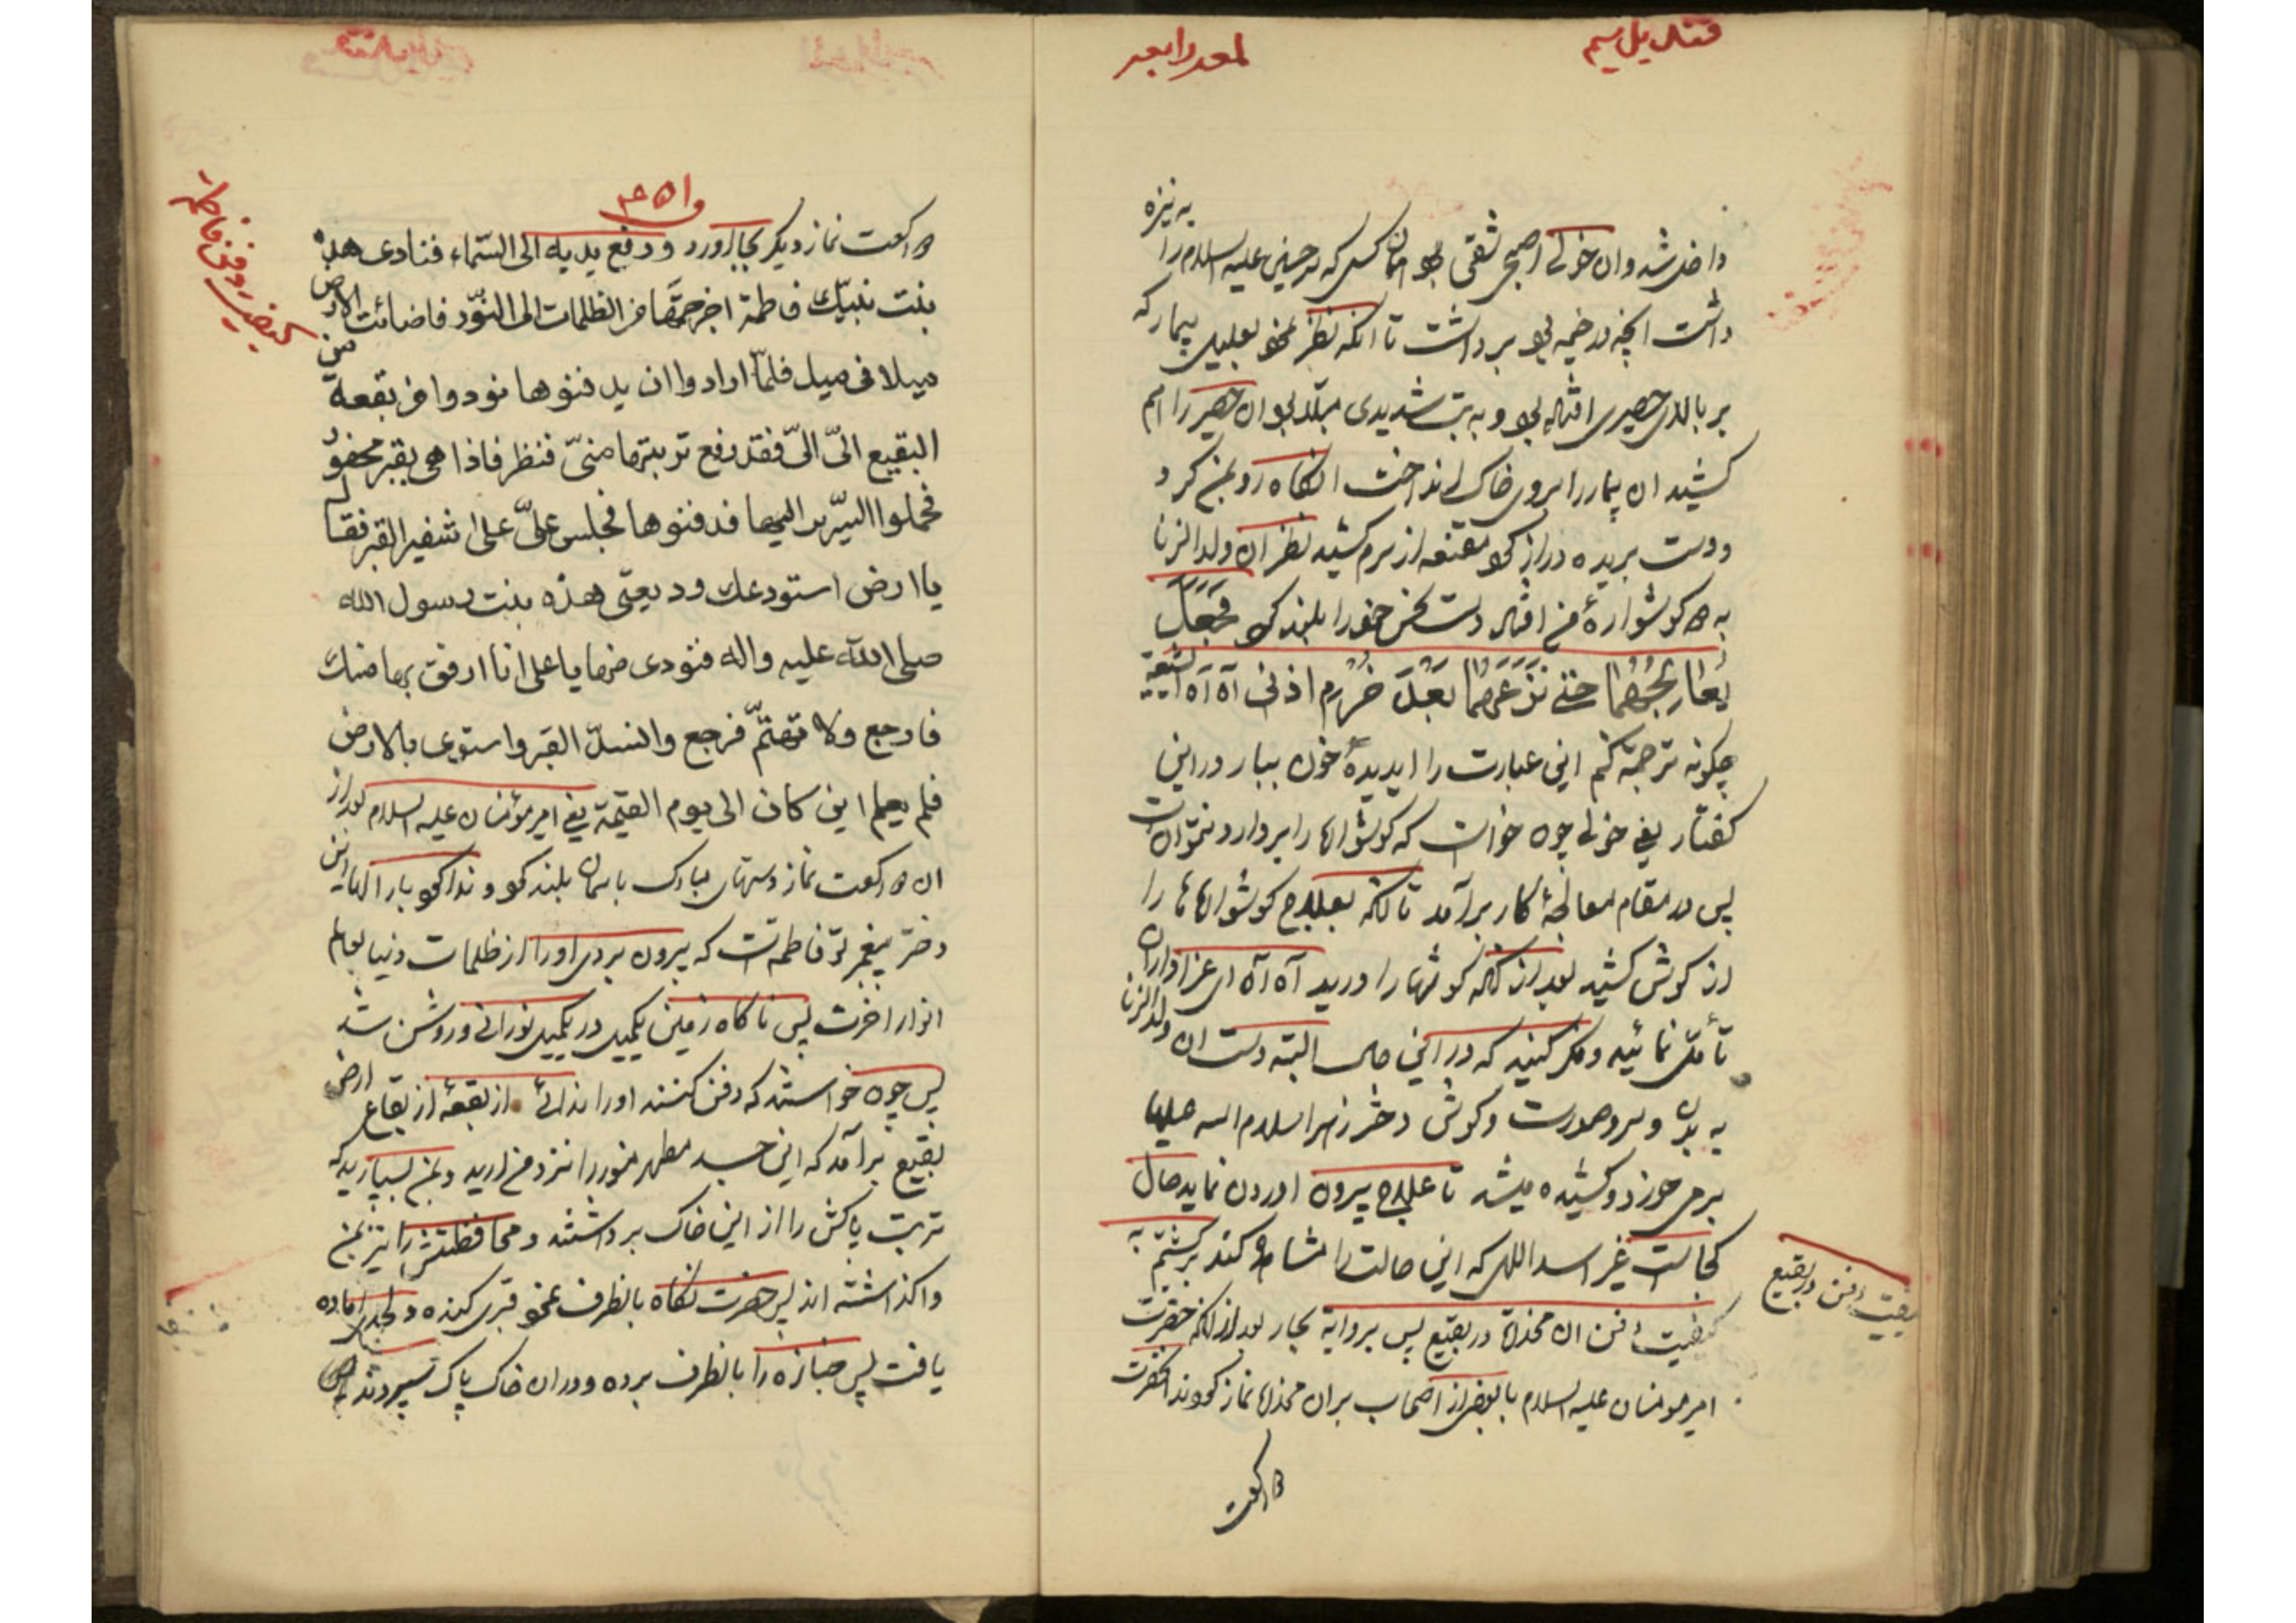 لمعه رابعه
داخل شد و ان خولی اصبحی شقی بود همان کسی که سر حسین علیه السلام را به نیزه
داشت انچه در خیمه بود برداشت تا انکه نظر نمود بعلیل بیمار که
بر بالای حصیری افتاده بود و به تب شدیدی مبتلا بود ان حصیر را هم
کشید ان بیمار را بروی خاک انداخت انکاه رو بمن کرد
و دست بریده دراز کرد مقنعه از سرم کشید نظر ان ولد الزنا
به دو کوشواره من افتاد دست نحس خود را بلند کرد فجعل
یعالجهما حتی نزعهما بعد خرم اذنی آه آه ایشیعه
چکونه ترجمه کنم این عبارت را ایدیده خون ببار در این
کفتار یعنی خولی چون خواست که کوشوارها را بردارد نتوانست
پس در مقام معالجهٔ کار برآمد تا آنکه بعلاج کوشوارها را
از کوش کشید بعد از آنکه کوشها را درید آه آه ای عزاداران
تأمل نمائید و فکر کنید که در این حال البته دست ان ولد الزنا
به بدن و سر و صورت و کوش دختر زهرا سلام الله علیها
برمی خورد و کشیده میشد تا علاج بیرون اوردن نماید حال
کجاست غیر اسد اللهی که این حالت را مشاهده کند برکشتیم به
کیفیت دفن ان مخدره در بقیع پس بروایة بحار بعد از انکه حضرت
امیر مومنان علیه السلام با بعضی از اصحاب بران مخدره نماز کردند انحضرت
دو رکعت
کیفیت دفن در بقیع
دو رکعت نماز دیکر بجا اورد و رفع یدیه الی السماء فنادی هذه
بنت نبیّک فاطمة اخرجتها من الظلمات الی النّور فاضائت الارض
میلا فی میل فلمّا ارادوا ان یدفنوها نودوا من بقعة من
البقیع الیّ الیّ فقد رفع تربتها منّی فنظر فاذا هی بقبر محفور
فحملوا السّریر الیها فدفنوها فجلس علیّ علی شفیر القبر فقال
یا ارض استودعک ودیعتی هذه بنت رسول الله
صلی الله علیه واله فنودی منها یا علی انا ارفق بها منک
فارجع ولا تهتمّ فرجع وانسدّ القبر واستوی بالارض
فلم یعلم این کان الی یوم القیمة یعنی امیر مؤمنان علیه السلام بعد از
ان دو رکعت نماز دستهای مبارک باسمان بلند کرد و ندا کرد بار الها این
دختر پیغمبر تو فاطمه است که بیرون بردی او را از ظلمات دنیا بعالم
انوار اخرت پس ناکاه زمین یکمیل در یکمیل نورانی و روشن شد
پس چون خواستند که دفن کنند او را ندائی از بقعهٔ از بقاع ارض
بقیع برآمد که این جسد مطهر منور را نزد من ارید و بمن بسپارید که
تربت پاکش را از این خاک برداشتند و محافظتش را نیز بمن
واکذاشته اند پس حضرت نکاه بانطرف نمود قبری کنده و لحدی اماده
یافت پس جنازه را بانطرف برده و در ان خاک پاک سپردند